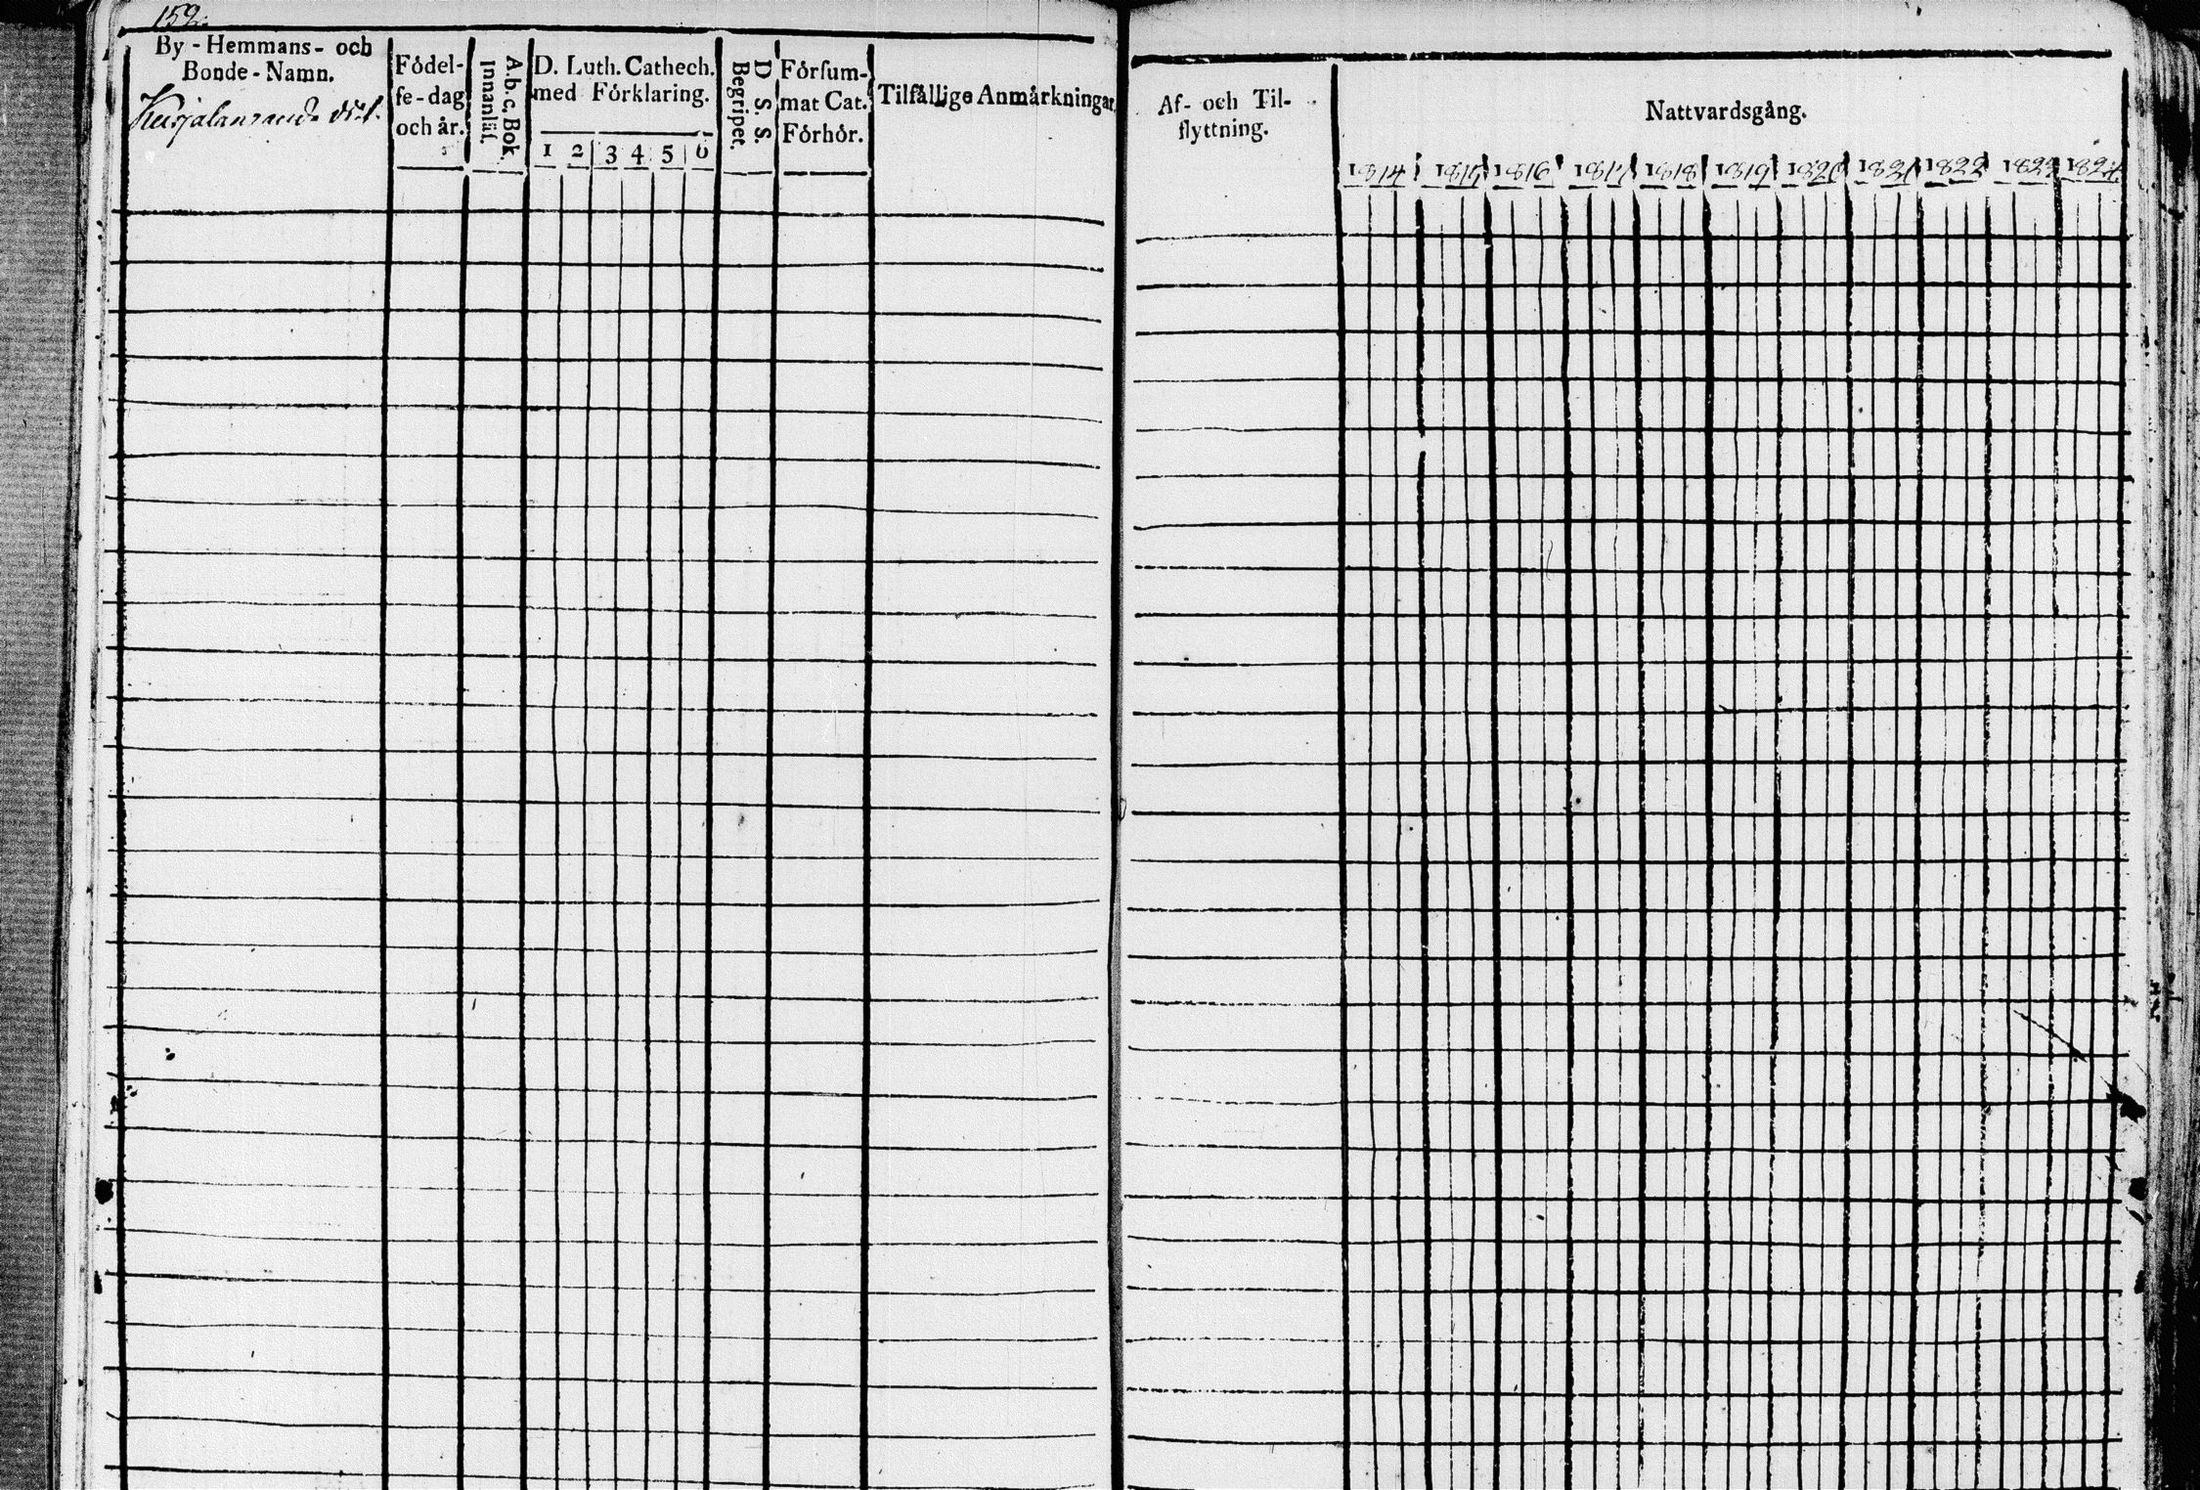 152.
By-Hemmans- och
Bonde-Namn.
Födel-
se-dag
och år.
A.b.c.Bok.
Innanläs.
D. Luth. Cathech.
med Förklaring.
1 2 3 4 5 6
D. S. S.
Begripet.
Försum-
mat Cat.
Förhör.
Tilfällige Anmärkningar.
Af- och Til-
flyttning.
Nattvardsgång.
1814 1815 1816 1817 1818 1819 1820 1821 1822 1823 1824